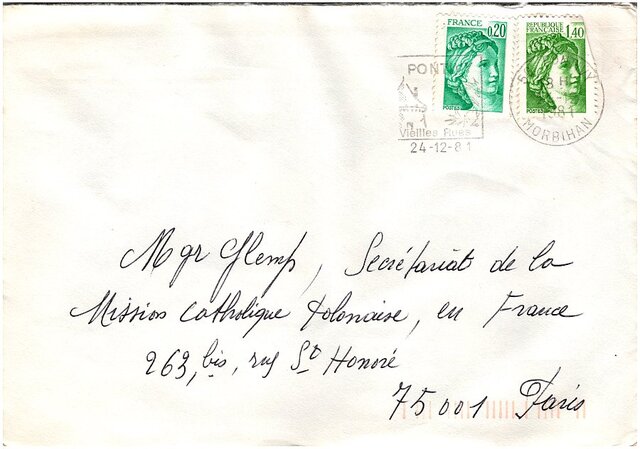 FRANCE 0,20
RÉPUBLIQUE FRANÇAISE 1,40
POSTES
POSTES
PONT
Vieilles Rues
24-12-81
18 H
1981
MORBIHAN
Mgr Glemp, Secrétariat de la
Mission Catholique Polonaise, en France
263, bis, rue St Honoré
75001 Paris